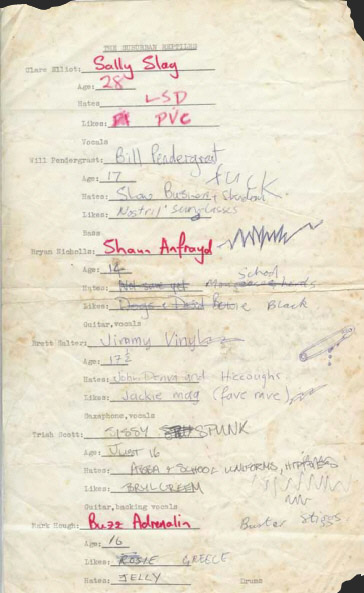 THE SUBURBAN REPTILES
Clare Elliot: Sally Slag
Age: 28
Hates LSD
Likes: PVC
Vocals
Will Pendergrast: Bill Pendergrast
Age: 17 fUCK
Hates: Show Business,
Likes: Nostril Sunglasses
Bass
Bryan Nicholls: Shaun Anfrayd
Age: 14
Hates: Not sure yet School
Likes: Dogs & Dead Bowie Black
Guitar,vocals
Brett Salter: Jimmy Vinyl
Age: 17½
Hates: John Denver and Hiccoughs
Likes: Jackie mag (fave rave)
Saxophone,vocals
Trish Scott: SISSY SPUNK
Age: JUST 16
Hates: ABBA & SCHOOL UNIFORMS, HIPPIES
Likes: BRYLCREEM
Guitar,backing vocals
Mark Hough: Buzz Adrenalin Buster Stiggs
Age: 16
Likes: ROSIE GREECE
Hates: JELLY Drums